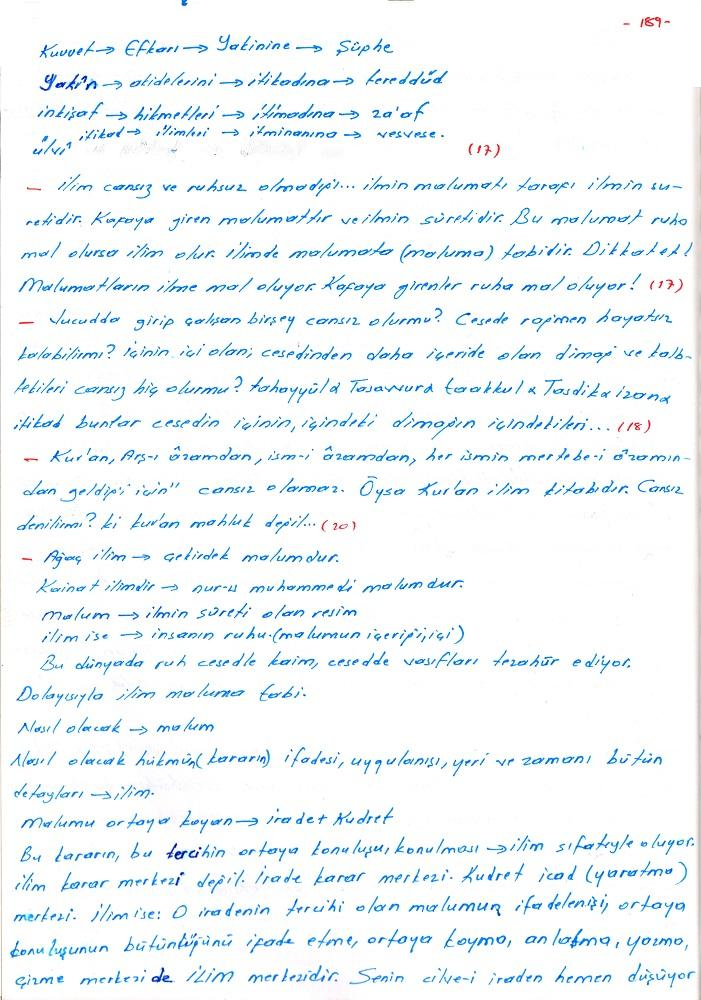 - 189-
Kuvvet → Efkarı → Yakinine → Şüphe
Yakîn → akidelerini → itikadına → tereddüd
inkişaf → hikmetleri → itimadına → za'af
ülvî itikad → ilimleri → itminanına → vesvese. (17)
— ilim cansız ve ruhsuz olmadığı... ilmin malumatı tarafı ilmin su-
retidir. Kafaya giren malumattır ve ilmin sûretidir. Bu malumat ruha
mal olursa ilim olur. ilimde malumata (maluma) tabidir. Dikkat et!
Malumatların ilme mal oluyor. Kafaya girenler ruha mal oluyor! (17)
— Vucudda girip çalışan birşey cansız olurmu? Cesede rağmen hayatsız
kalabilirmi? içinin içi olan, cesedinden daha içeride olan dimağ ve kalb-
tekileri cansız hiç olurmu? tahayyül & Tasavvur & taakkul & Tasdik & izan &
itikad bunlar cesedin içinin, içindeki dimağın içindekileri... (18)
— Kur'an, Arş-ı âzamdan, ism-i âzamdan, her ismin mertebe-i âzamın-
dan geldiği için" cansız olamaz. Öysa Kur'an ilim kitabıdır. Cansız
denilirmi? ki kur'an mahluk değil... (20)
— Ağaç ilim → çekirdek malumdur.
Kainat ilimdir → nur-u muhammedi malumdur.
Malum → ilmin sûreti olan resim
ilim ise → insanın ruhu. (malumun içeriği, içi)
Bu dünyada ruh cesedle kaim, cesedde vasıfları tezahür ediyor.
Dolayısıyla ilim maluma tabi.
Nasıl olacak → malum
Nasıl olacak hükmün (kararın) ifadesi, uygulanışı, yeri ve zamanı bütün
detayları → ilim.
Malumu ortaya koyan → irade + Kudret
Bu kararın, bu tercihin ortaya konuluşu, konulması → ilim sıfatıyle oluyor.
ilim karar merkezi değil. İrade karar merkezi. Kudret icad (yaratma)
merkezi. ilim ise: O iradenin tercihi olan malumun ifadelenişi, ortaya
konuluşunun bütünlüğünü ifade etme, ortaya koyma, anlatma, yazma,
çizme merkezi de İLİM merkezidir. Senin cilve-i iraden hemen düşüyor